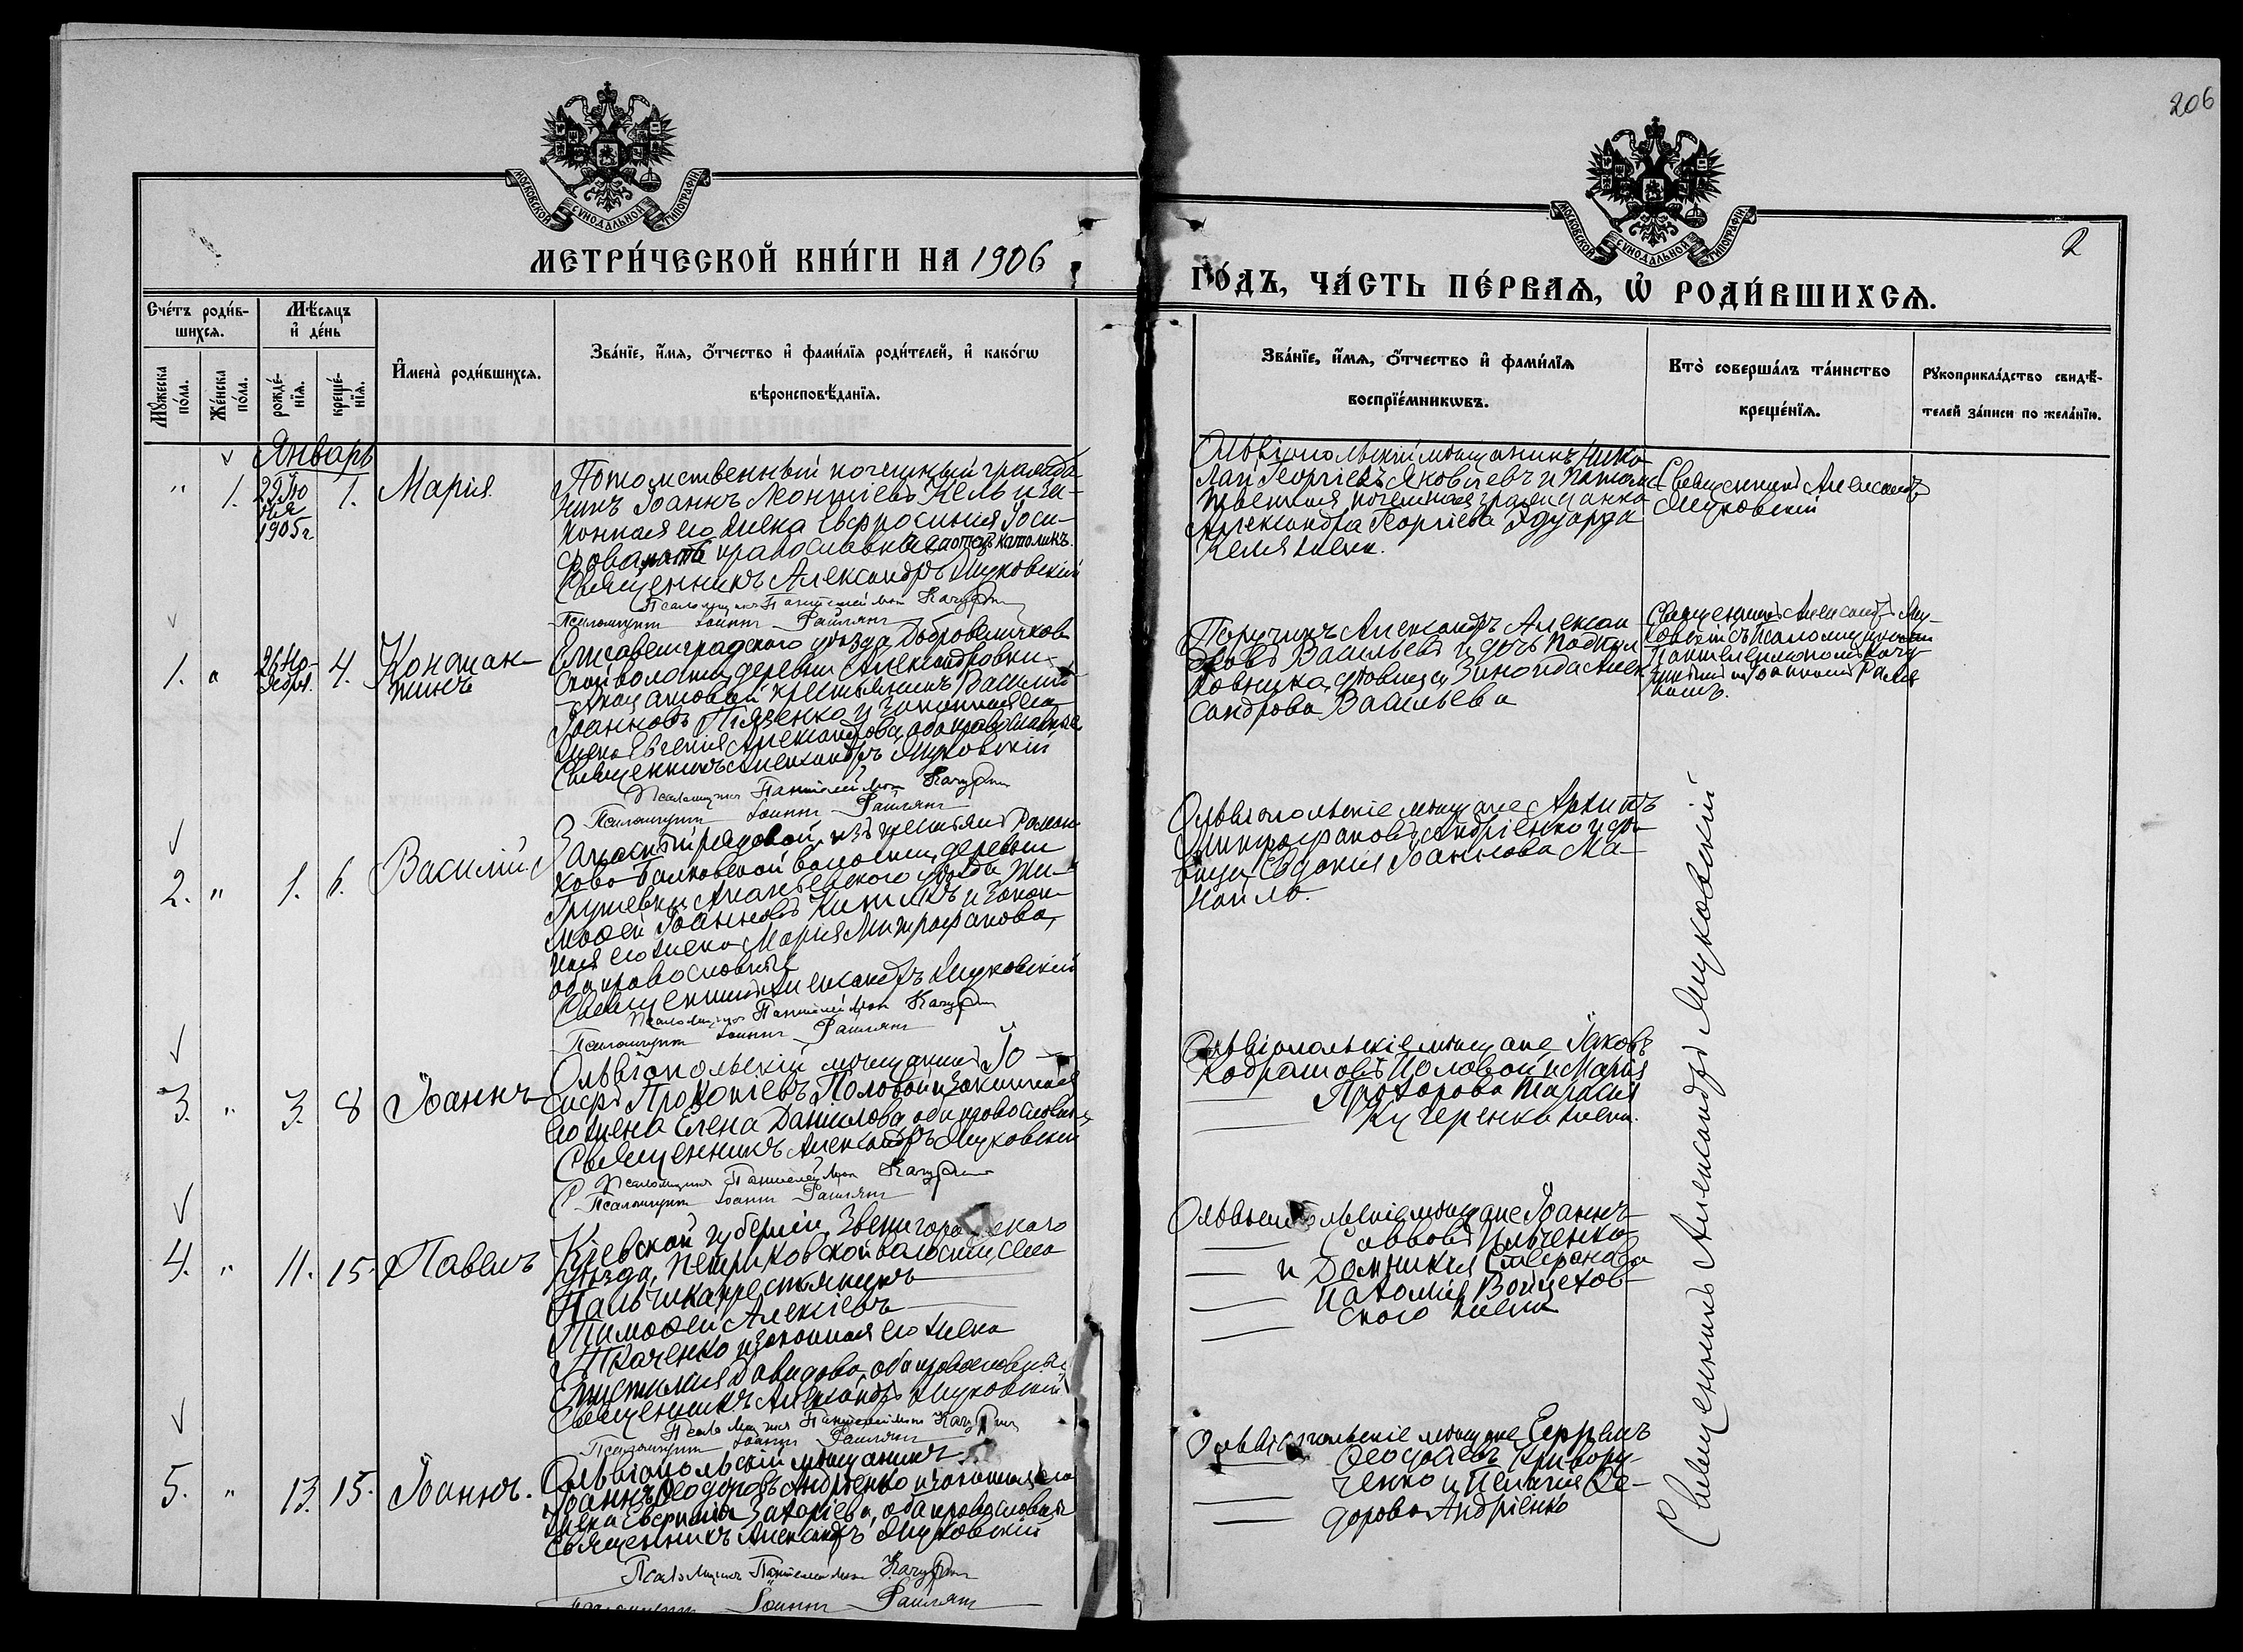 206
2
МОСКОВСКОЙ СѴНОДАЛЬНОЙ ТИПОГРАФІИ
МЕТРИ́ЧЕСКОЙ КНИ́ГИ НА 1906
МОСКОВСКОЙ СѴНОДАЛЬНОЙ ТИПОГРАФІИ
ГО́ДЪ, ЧА́СТЬ ПЕ́РВАѦ, Ѡ҆ РОДИ́ВШИХСѦ.
Сче́тъ роди́в-
шихсѧ.
Му́жеска по́ла.
Же́нска по́ла.
Мѣ́сяцъ
и҆ де́нь
рожде́-
нїѧ.
креще́-
нїѧ.
И҆мена̀ роди́вшихсѧ.
Зва́нїе, и҆́мѧ, ѻ҆́тчество и҆ фами́лїѧ роди́телей, и҆ како́гѡ
вѣроисповѣ́данїѧ.
Зва́нїе, и҆́мѧ, ѻ҆́тчество и҆ фами́лїѧ
воспрїе́мникѡвъ.
Кто̀ соверша́лъ та́инство
креще́нїѧ.
Рꙋкоприкла́дство свидѣ́-
телей за́писи по жела́нїю.
Январь
" 1. 29 1905 г 1. Марія.
Потомственный почетный гражда-
нинъ Іоаннъ Леонтіевъ Кель и за-
конная его жена Евфросинія Іоси-
фова, мать православная а отецъ католикъ.
Священникъ Александръ Мцуковскій
Псаломщикъ Пантелеймон
Псаломщикъ Іоаннъ
Ольвіопольскій мѣщанинъ Нико-
лай Георгіевъ Яковлевъ и потом-
ственная почетная гражданка
Александра Георгіева Эдуарда
Келя жена.
Священникъ Александръ
Мцуковскій
1. " 26 Но-
ября. 4. Констан-
тинъ
Елисаветградскаго уѣзда Добровеличков-
ской волости деревни Александровки-
крестьянинъ Василій
Іоанновъ и законная его
жена Евгенія Александрова, оба православные
Священникъ Александръ Мцуковскій
Псаломщикъ Пантелеймон
Псаломщикъ Іоаннъ
Поручикъ Александръ Алексан-
дровъ Васильевъ и дочь подпол-
ковника, дѣвица Зинаида Алек-
сандрова Васильева
Священникъ Александръ Мцу-
ковскій съ псаломщиками
Пантелеймономъ
и Іоанномъ
2. " 1. 6. Василій.
Запасный рядовой, изъ крестьянъ Роман-
ково-Балковской волости, деревни
Грушевки, Ананьевскаго уѣзда Ти-
мофей Іоанновъ и закон-
ная его жена Марія Митрофанова,
оба православные
Священникъ Александръ Мцуковскій
Псаломщикъ Пантелеймон
Псаломщикъ Іоаннъ
Ольвіопольскіе мѣщане Архипъ
Митрофановъ Андріенко и дѣ-
вица Евдокія Іоаннова Ма-
найло.
3. " 3. 8 Іоаннъ
Ольвіопольскій мѣщанинъ Іо-
сифъ Прокопіевъ Половой и законная
его жена Елена Даніилова, оба православные
Священникъ Александръ Мцуковскій
Псаломщикъ Пантелеймон
Псаломщикъ Іоаннъ
Ольвіопольскіе мѣщане Іаковъ
Кодратовъ Половой и Марія
Прохорова Тарасія
Кучеренка жена.
4. " 11. 15. Павелъ
Кіевской губерніи, Звенигородскаго
уѣзда, Петриковской волости, села
Пальчика, крестьянинъ
Тимофей Алексіевъ
Ткаченко и законная его жена
Давидова, оба православные
Священникъ Александръ Мцуковскій
Псаломщикъ Пантелеймон
Псаломщикъ Іоаннъ
Ольвіопольскіе мѣщане Іоаннъ
Савовъ Ильченко
и Домникія Стефанова
Пахомія Войцехов-
скаго жена
5. " 13. 15. Іоаннъ.
Ольвіопольскій мѣщанинъ
Іоаннъ Ѳеодоровъ Андріенко и законная его
жена Евфимія Захаріева, оба православные
Священникъ Александръ Мцуковскій
Псаломщикъ Пантелеймон
Іоаннъ
Ольвіопольскіе мѣщане Ефремъ
Кривору-
ченко и Пелагія Ѳе-
дорова Андріенко
Священникъ Александръ Мцуковскій